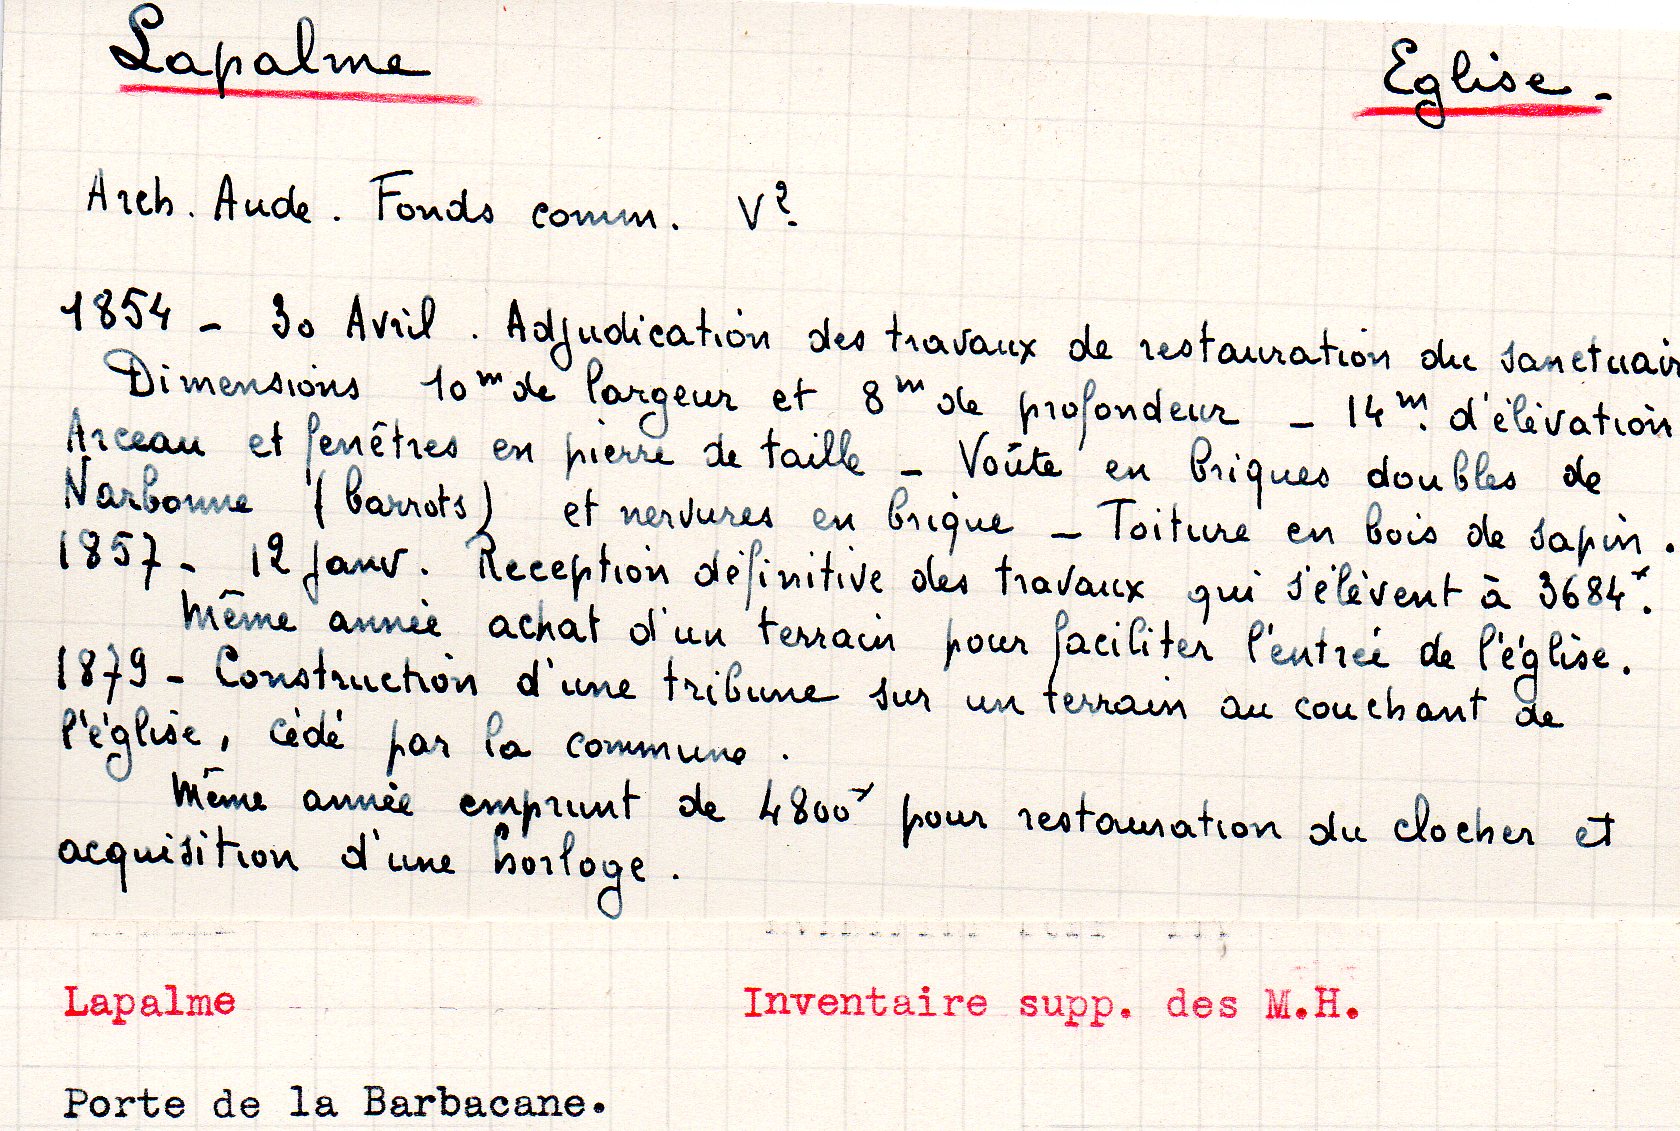 Lapalme Eglise.-
Arch. Aude. Fonds comm. V2.
1854 - 30 Avril. Adjudication des travaux de restauration du sanctuair
Dimensions 10m de largeur et 8m de profondeur - 14m. d'élévation
Arceau et fenêtres en pierre de taille - Voûte en briques doubles de
Narbonne (barrots) et nervures en brique - Toiture en bois de sapin.
1857 - 12 Janv. Reception définitive des travaux qui s'élèvent à 3684.
Même année achat d'un terrain pour faciliter l'entrée de l'église.
1879 - Construction d'une tribune sur un terrain au couchant de
l'église, cédé par la commune.
Même année emprunt de 4800 pour restauration du clocher et
acquisition d'une horloge.
Lapalme Inventaire supp. des M.H.
Porte de la Barbacane.